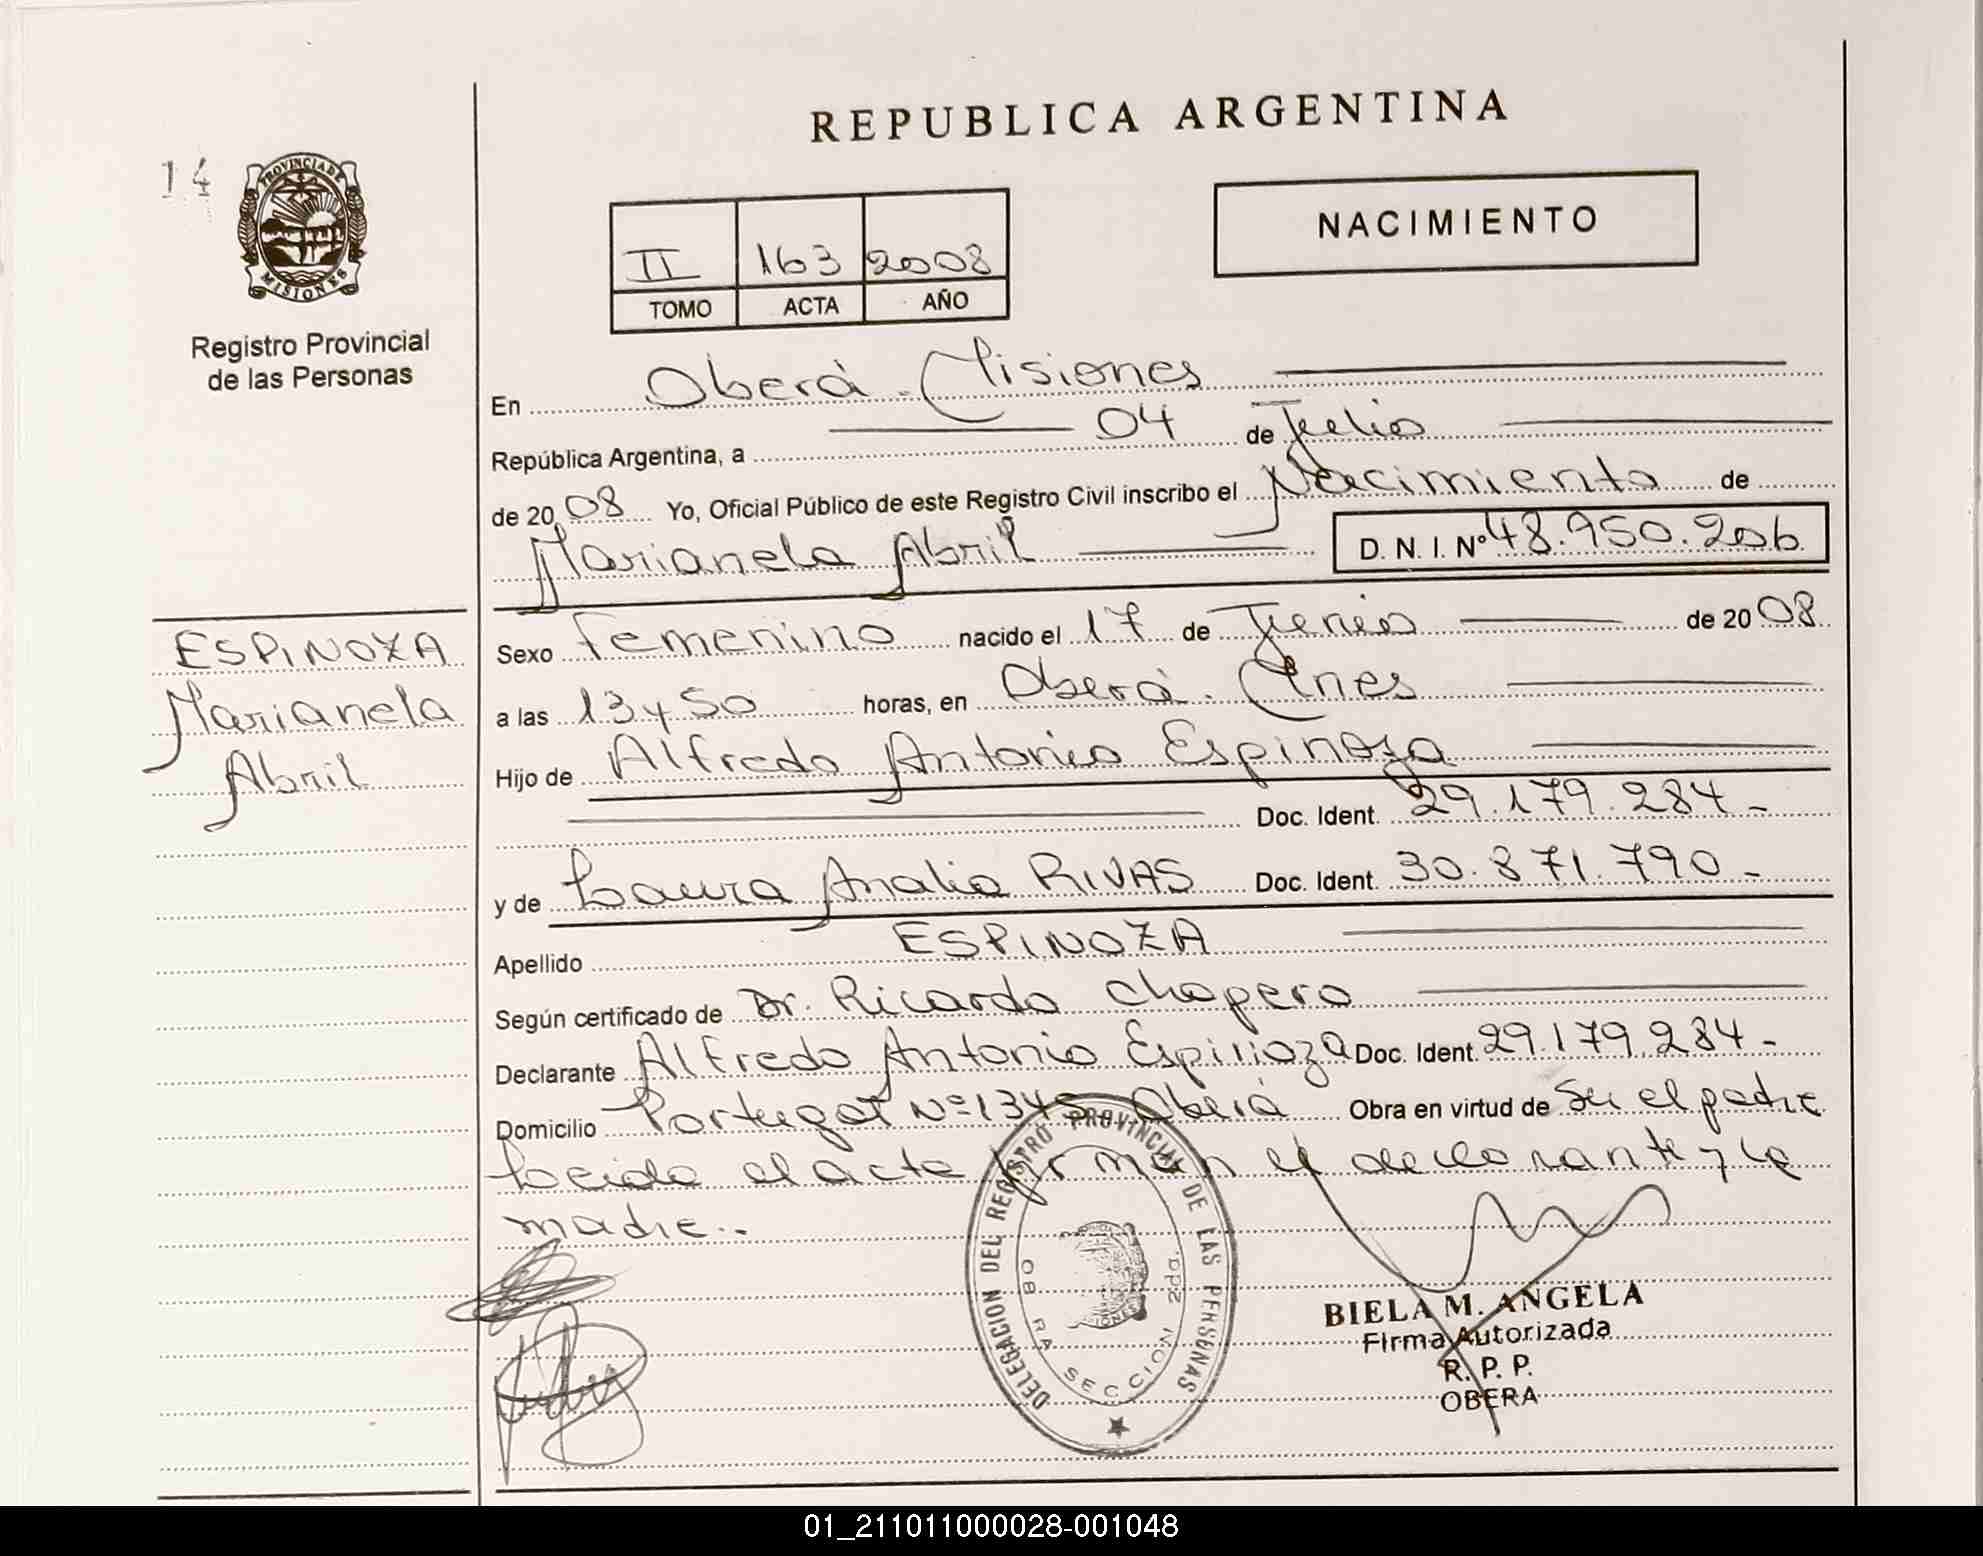 REPUBLICA ARGENTINA
14
PROVINCIA DE
MISIONES
Registro Provincial
de las Personas
II 163 2008
TOMO ACTA AÑO
NACIMIENTO
En Oberá - Misiones
República Argentina, a 04 de Julio
de 2008 Yo, Oficial Público de este Registro Civil inscribo el Nacimiento de
Marianela Abril D. N. I. Nº 48.950.206
ESPINOZA
Marianela
Abril
Sexo femenino nacido el 17 de Junio de 2008
a las 13 y 50 horas, en Oberá - Mnes
Hijo de Alfredo Antonio Espinoza
Doc. Ident. 29.179.284-
y de Laura Analia RIVAS Doc. Ident. 30.871.790-
Apellido ESPINOZA
Según certificado de Dr. Ricardo Chapero
Declarante Alfredo Antonio Espinoza Doc. Ident. 29.179.284-
Domicilio Portugal Nº 1345 Oberá Obra en virtud de Ser el padre
Leida el acta firman el declarante y la
madre..
DELEGACION DEL REGISTRO PROVINCIAL DE LAS PERSONAS
OBERA SECCION 2da.
BIELA M. ANGELA
Firma Autorizada
R. P. P.
OBERA
01_211011000028-001048